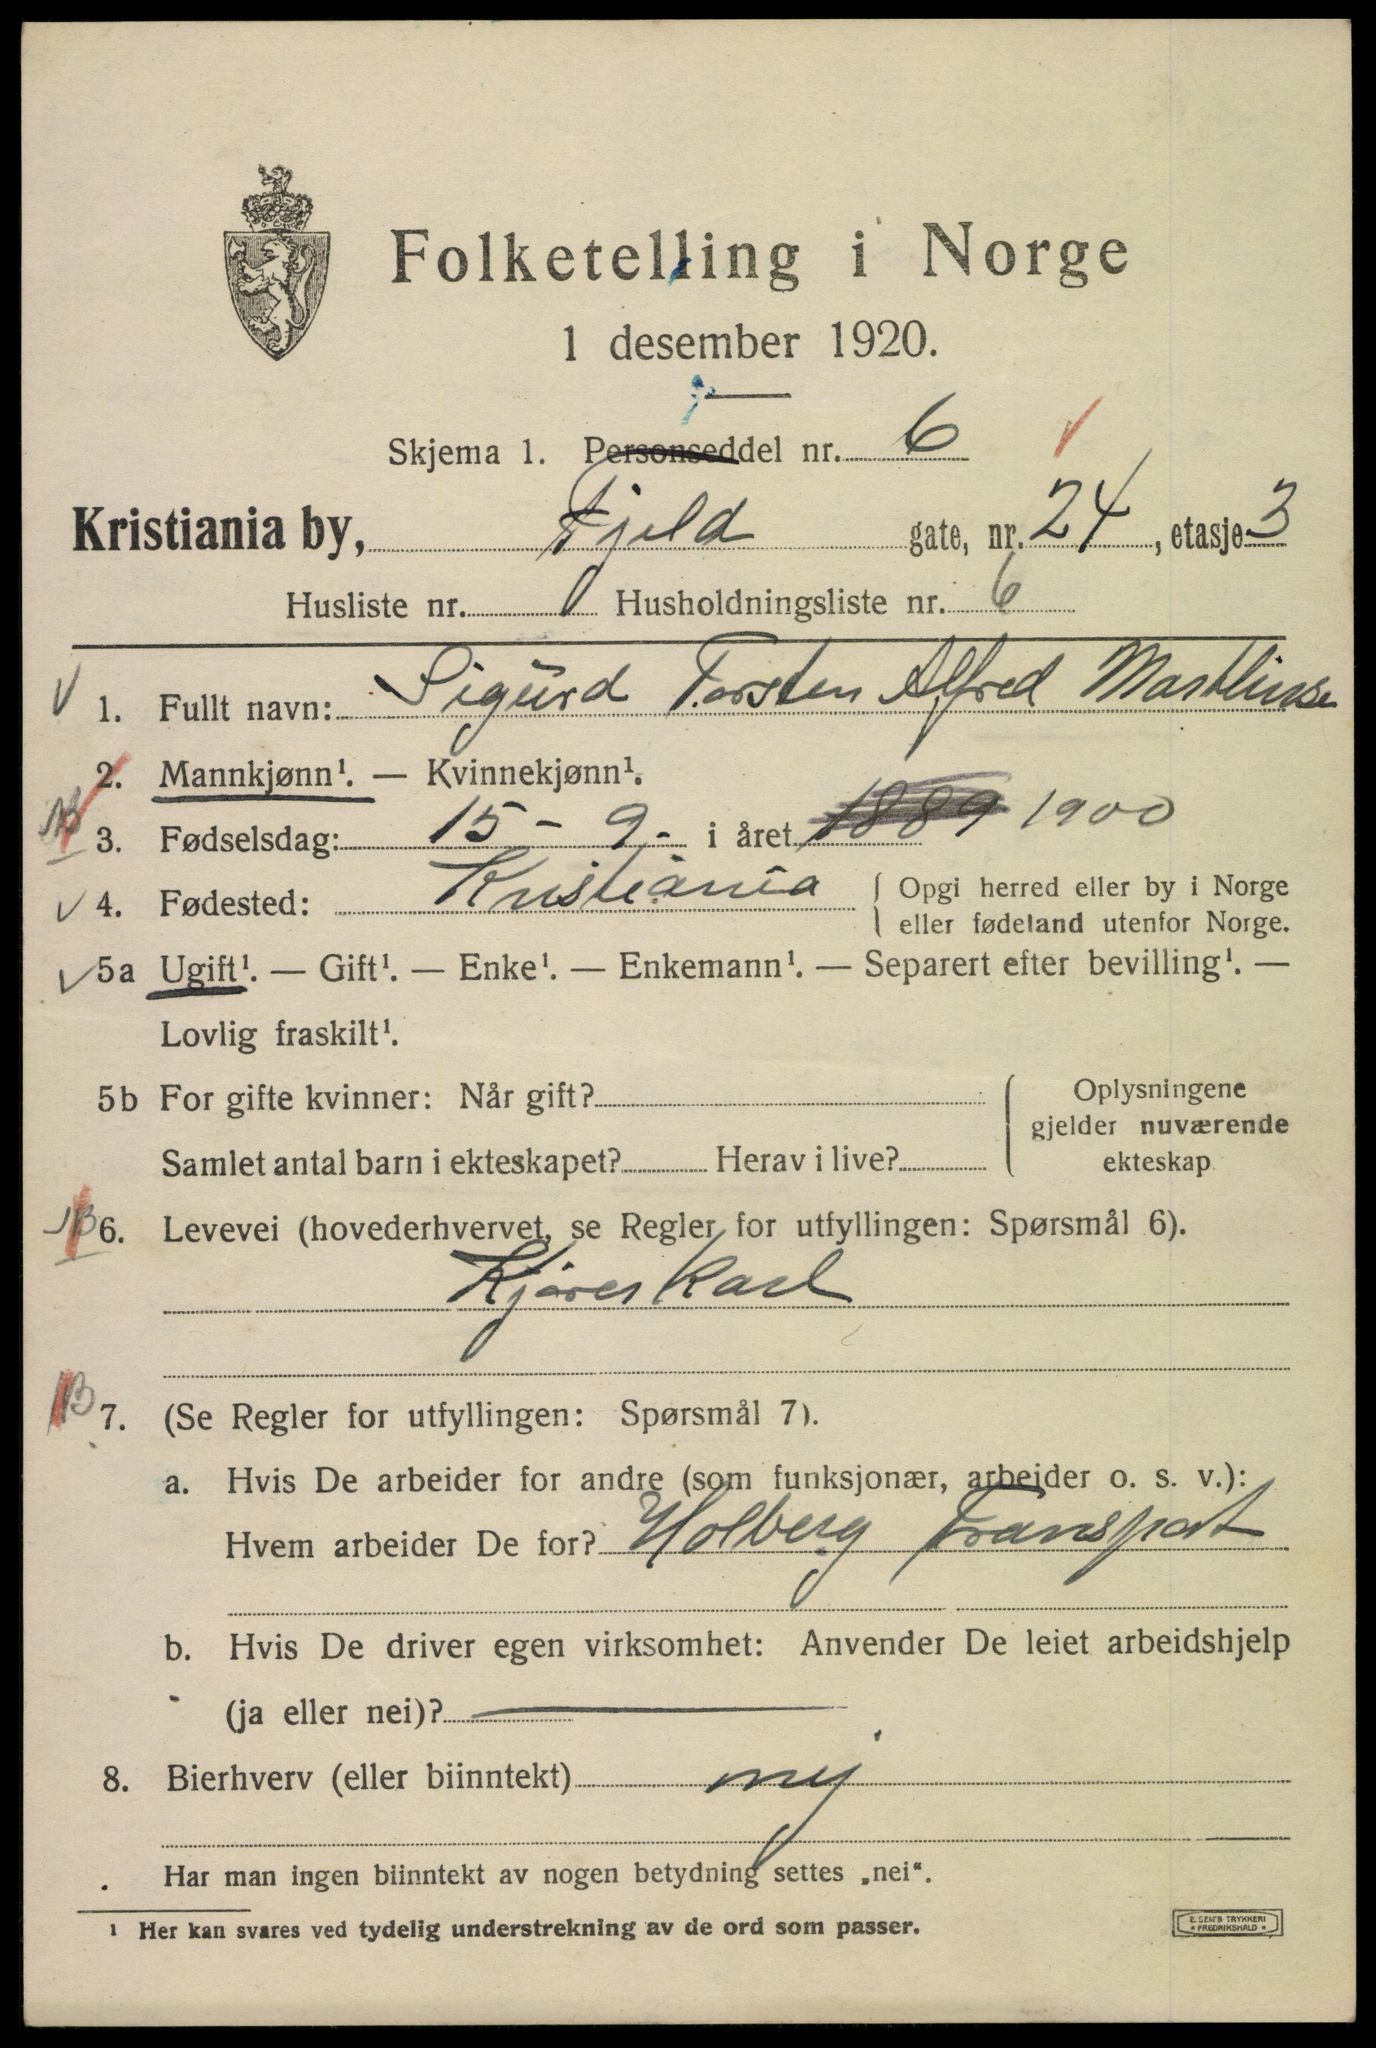 Folketelling i Norge
1 desember 1920.
Skjema 1. Personseddel nr. 6
Kristiania by, Fjeld gate, nr. 24, etasje 3
Husliste nr. 1 Husholdningsliste nr. 6
1. Fullt navn: Sigurd Torsten Alfred
2. Mannkjønn¹. — Kvinnekjønn¹.
3. Fødselsdag: 15 - 9 - i året 1889 1900
4. Fødested: Kristiania { Opgi herred eller by i Norge
eller fødeland utenfor Norge.
5a Ugift¹. — Gift¹. — Enke¹. — Enkemann¹. — Separert efter bevilling¹. —
Lovlig fraskilt¹.
5b For gifte kvinner: Når gift? { Oplysningene
gjelder nuværende
Samlet antal barn i ekteskapet? Herav i live? ekteskap
6. Levevei (hovederhvervet, se Regler for utfyllingen: Spørsmål 6).
Kjøreskarl
7. (Se Regler for utfyllingen: Spørsmål 7).
a. Hvis De arbeider for andre (som funksjonær, arbeider o. s. v.):
Hvem arbeider De for? Holberg Transport
b. Hvis De driver egen virksomhet: Anvender De leiet arbeidshjelp
(ja eller nei)? —
8. Bierhverv (eller biinntekt) nej
Har man ingen biinntekt av nogen betydning settes „nei“.
¹ Her kan svares ved tydelig understrekning av de ord som passer.
E. SEM'S TRYKKERI
FREDRIKSHALD